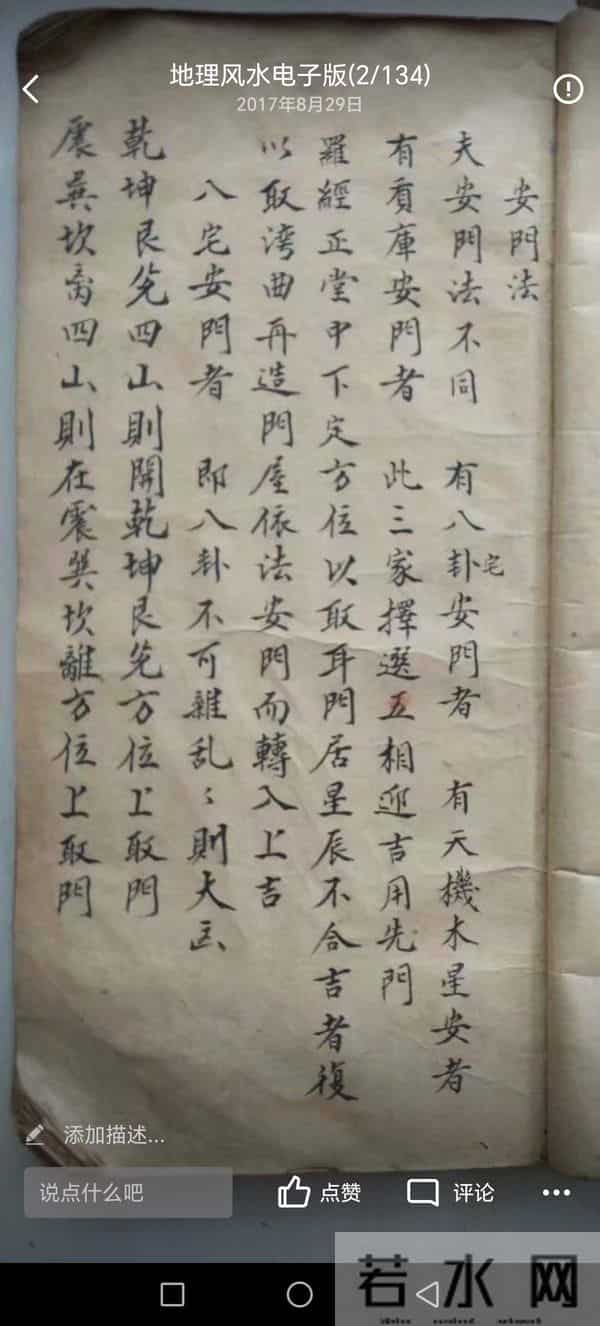 地理风水电子版(2/134)
2017年8月29日
安門法
夫安門法不同 有八卦宅安門者 有天機木星安者
有頁庫安門者 此三家擇選五相迎吉用先門
羅經正堂中下定方位以取耳門居星辰不合吉者復
以取湾曲再造門屋依法安門而轉入上吉
八宅安門者 即八卦不可雜乱〻則大凶
乾坤艮兑四山則開乾坤艮兑方位上取門
震巽坎离四山則在震巽坎離方位上取門
添加描述...
说点什么吧
点赞
评论
若水网